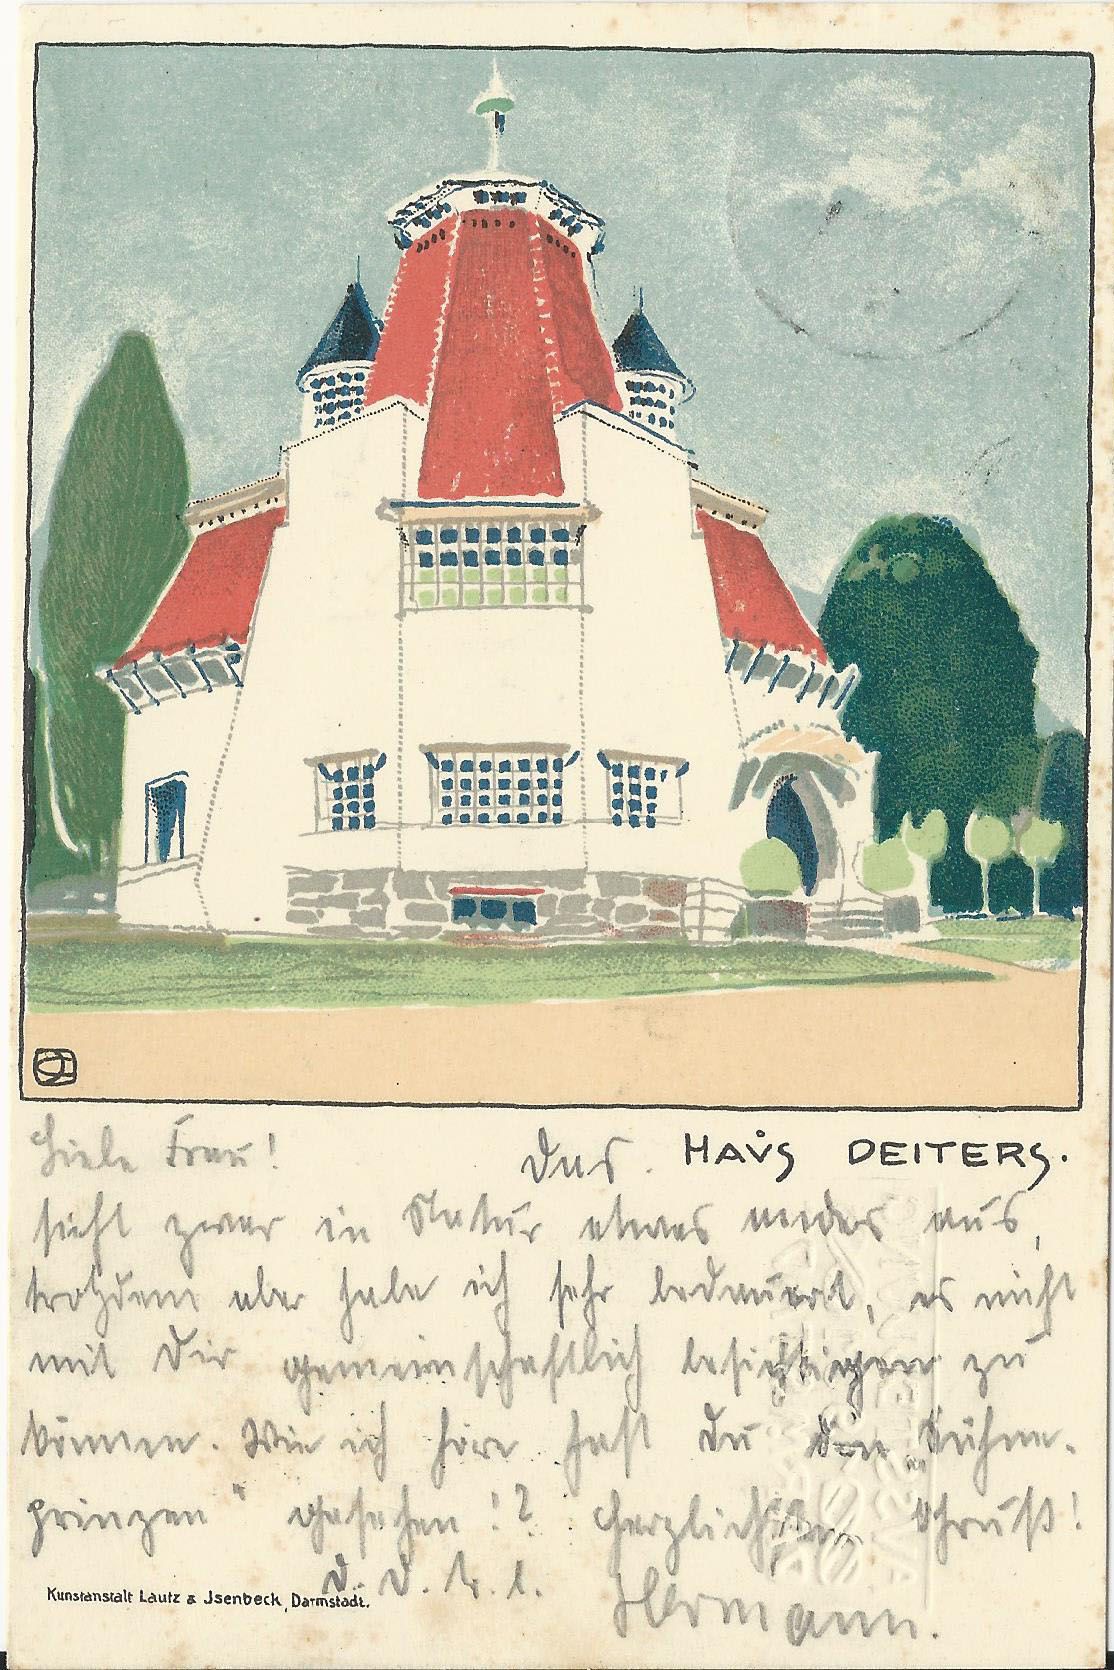 Liebe Frau! Das HAUS DEITERS.
sieht zwar in Natur etwas anders aus,
trotzdem aber habe ich sehr bedauert, es nicht
mit Dir gemeinschaftlich besichtigen zu
können. Wie ich höre hast Du den Bühnen-
prinzen" gesehen!? Herzlichsten Gruß!
D. D. l. l.
Hermann.
Kunstanstalt Lautz & Jsenbeck, Darmstadt.